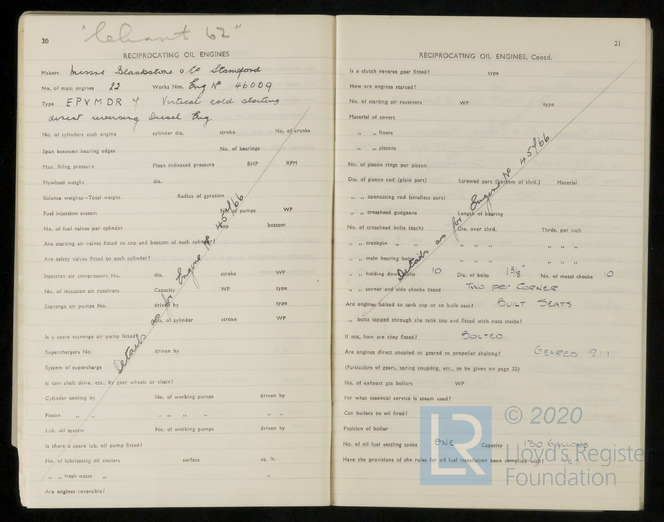 20
"Chant 62"
RECIPROCATING OIL ENGINES
Makers Messrs Blackstone & Co Stamford
No. of main engines 22 Works Nos. Eng Nº 46009
Type EPVMDR 4 Vertical cold starting
direct reversing Diesel Eng
No. of cylinders each engine cylinder dia. stroke No. of cranks
Span between bearing edges No. of bearings
Max. firing pressure Mean indicated pressure BHP RPM
Flywheel weight dia.
Balance weights—Total weight Radius of gyration
Fuel injection system No. of pumps WP
No. of fuel valves per cylinder top bottom
Are starting air valves fitted to top and bottom of each cylinder?
Are safety valves fitted to each cylinder?
Injection air compressors No. dia. stroke WP
No. of injection air receivers Capacity WP type
Scavenge air pumps No. driven by type
dia. of cylinder stroke WP
Is a spare scavenge air pump fitted?
Superchargers No. driven by
System of supercharge
Is cam shaft drive, etc., by gear wheels or chain?
Cylinder cooling by No. of working pumps driven by
Piston " " " " " " " "
Lub. oil system No. of working pumps driven by
Is there a spare lub. oil pump fitted?
No. of lubricating oil coolers surface sq. ft.
" " fresh water " "
Are engines reversible?
Details as for Engine Nº 45/66
21
RECIPROCATING OIL ENGINES, Contd.
Is a clutch reverse gear fitted? type
How are engines started?
No. of starting air receivers WP type
Material of covers
" " liners
" " pistons
No. of piston rings per piston
Dia. of piston rod (plain part) Screwed part (bottom of thrd.) Material
" " connecting rod (smallest part)
" " crosshead gudgeons Length of bearing
No. of crosshead bolts (each) Dia. over thrd. Thrds. per inch
" " crankpin " " " " " " "
" " main bearing bolts " " " " "
" " holding down bolts 10 Dia. of bolts 1⅜" No. of metal chocks 10
" " corner and side chocks fitted TWO PER CORNER
Are engines bolted to tank top or to built seat? BUILT SEATS
" bolts tapped through the tank top and fitted with nuts inside?
If not, how are they fitted? BOLTED
Are engines direct coupled or geared to propeller shafting? GEARED 2:1
(Particulars of gears, spring coupling, etc., to be given on page 32)
No. of exhaust gas boilers WP
For what essential service is steam used?
Can boilers be oil fired?
Position of boiler
No. of oil fuel settling tanks ONE Capacity 130 GALLONS
Have the provisions of the rules for oil fuel installation been complied with? YES
Details as for Engine Nº 45/66
LR © 2020
Lloyd's Register
Foundation